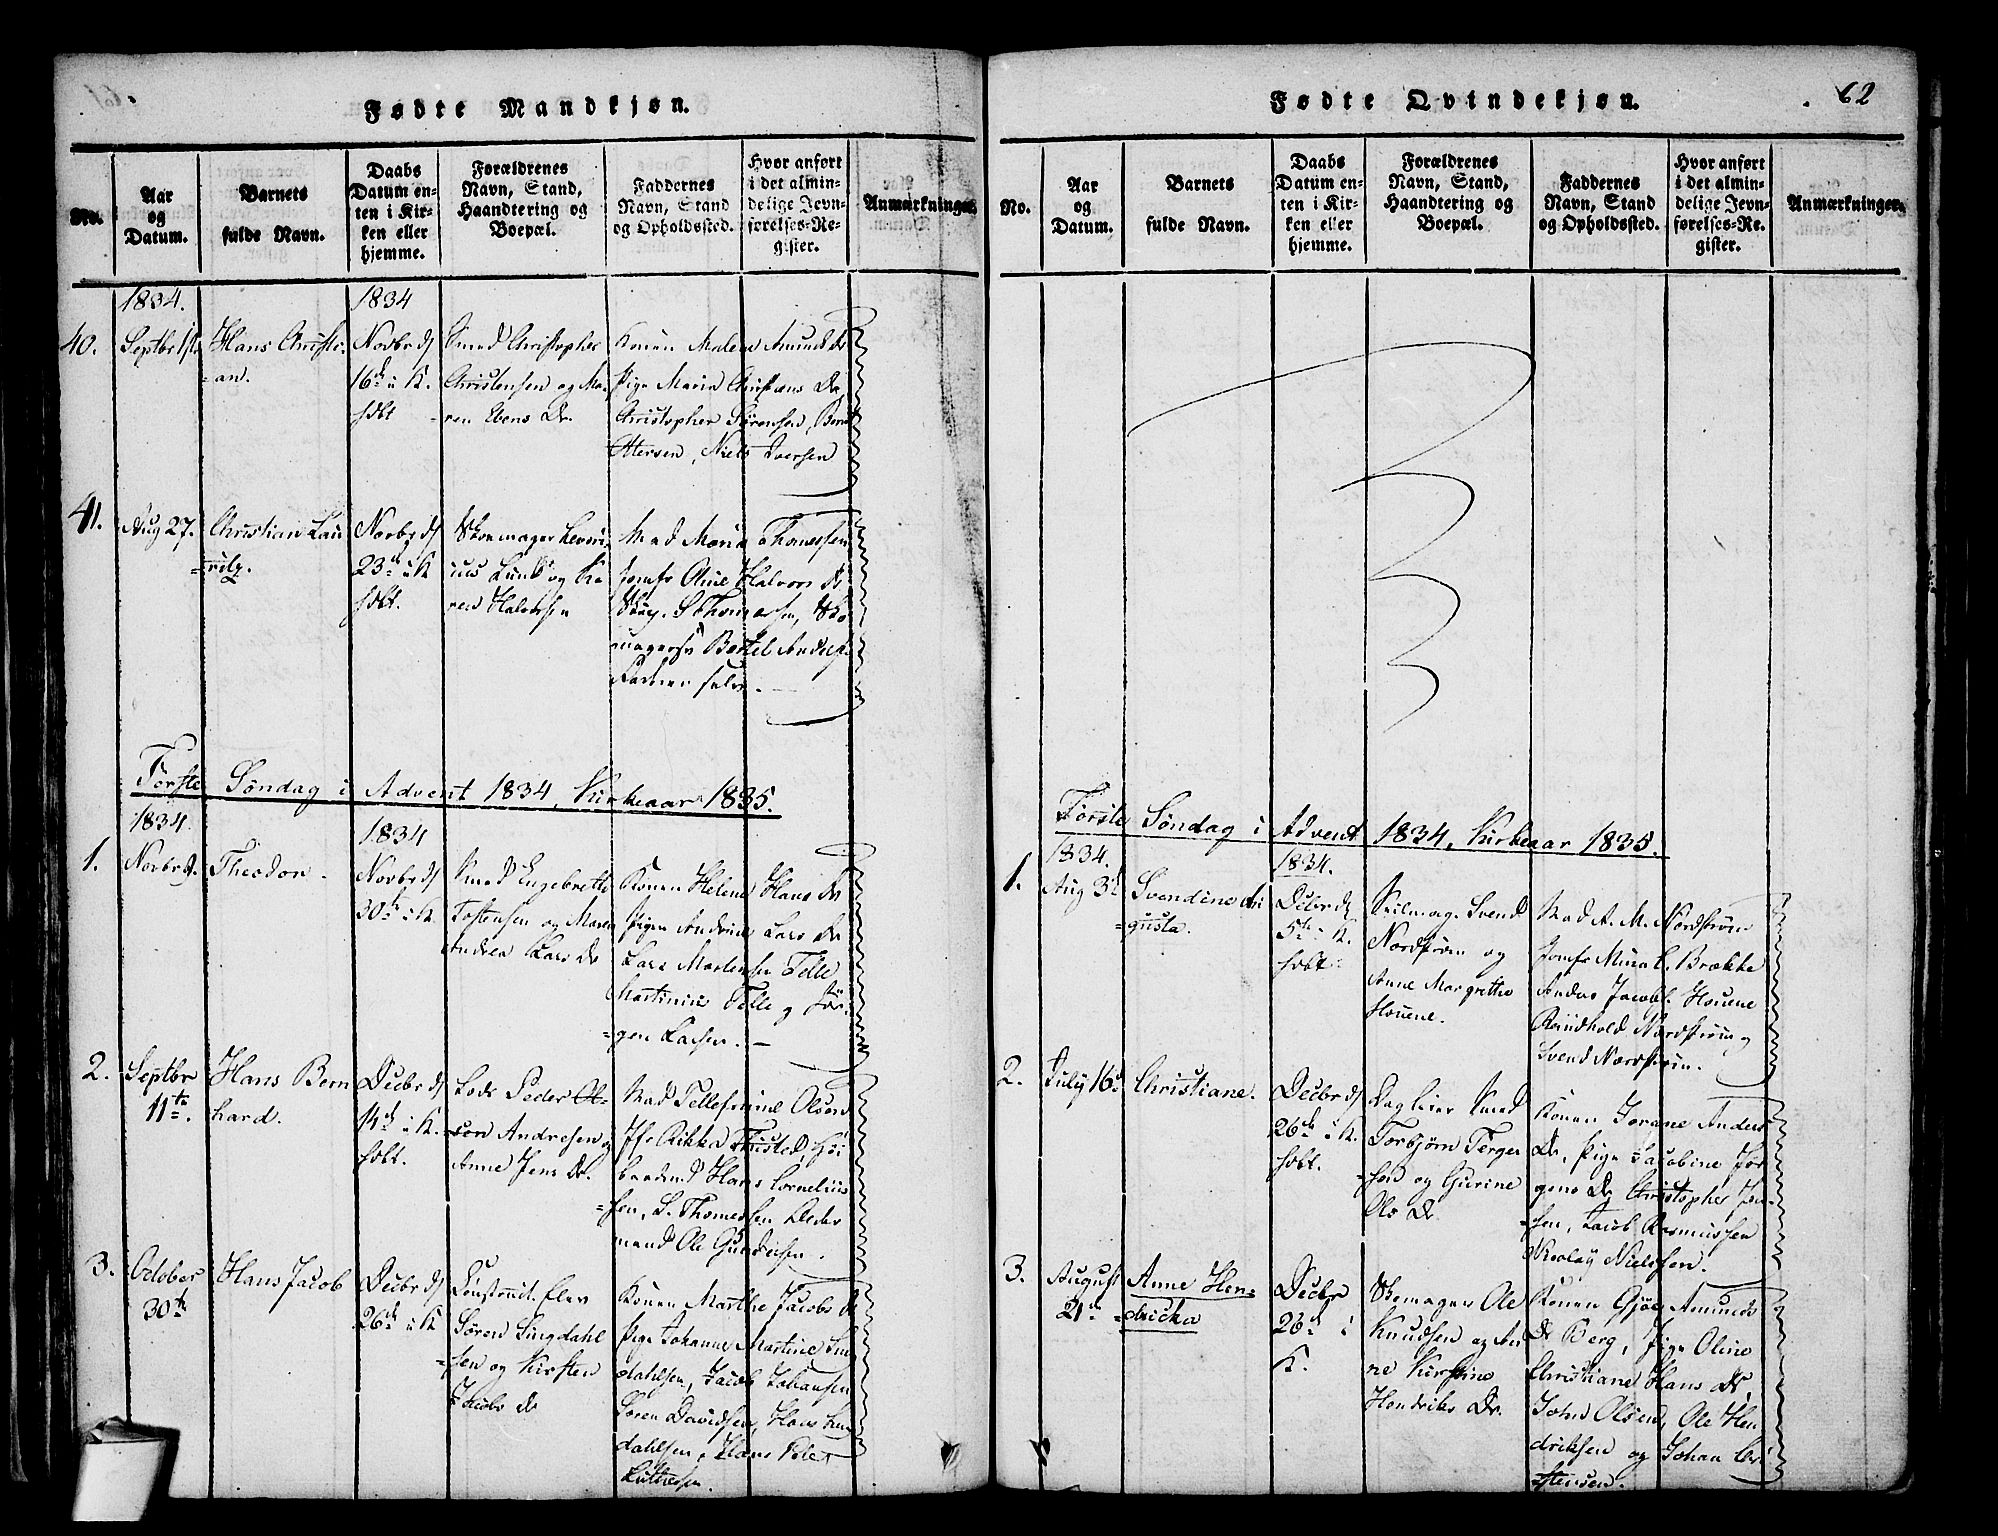 Fødte Mandkjøn.
No.
Aar
og
Datum.
Barnets
fulde Navn.
Daabs
Datum en-
ten i Kir-
ken eller
hjemme.
Forældrenes
Navn, Stand,
Haandtering og
Boepæl.
Faddernes
Navn, Stand
og Opholdssted.
Hvor anført
i det almin-
delige Jevn-
førelses-Re-
gister.
Anmærkninger.
1834.
1834
40.
Septbr 1ste
Hans Christi-
=an.
Novbr d
16de i K.
hdbt
Smed Christopher
Christensen og Ma-
ren Ebens Dr.
Konen Malene Amunds Dr
Pige Maria Christians Dr
Christopher Sørensen, Bernt
Niels Iversen
41.
Aug 27.
Christian Lau
=ritz.
Novbr d
23de i K
hdbt.
Skomager
Lund og Ka
ren Halvorsen
Mad Maria Thomessen
Jomfr Oline Halvors Dr
S Thomessen, Sko
magersv Bertel
Faderen selv. —
Første Søndag i Advent 1834, Kirkeaar 1835.
1834.
1834
1.
Novbr
Theodor.
Novbr d
30te i K
Smed Engebreth
Tostensen og Maren
Andrea Lars Dr
Konen Helene Hans Dr
Pigen Andrine Lars Dr
Lars Mortensen Telle
Telle og Jør-
=gen Larsen. —
2.
Septbr
11te.
Hans Bern
hard.
Decbr d
14de i K.
hdbt.
Lods Peder Ol-
sen Andresen og
Anne Jens Dr.
Mad Olsen
Jfr Rikka Thisted,
Hans Cornelius
=sen, S. Thomessen
mand Ole
3.
October
30te
Hans Jacob
Decbr d
26de i K
Constituert Elev
Søren Lingdahl
=sen og Kirsten
Jacobs Dr
Konen Marthe Jacobs Dr
Pige Johanne Martine Lin
dahlsen, Jacob Johansen
Søren Davidsen, Hans Lin
dahlsen, Hans
62
Fødte Qvindekjøn.
No.
Aar
og
Datum.
Barnets
fulde Navn.
Daabs
Datum en-
ten i Kir-
ken eller
hjemme.
Forældrenes
Navn, Stand,
Haandtering og
Boepæl.
Faddernes
Navn, Stand
og Opholdssted.
Hvor anført
i det almin-
delige Jevn-
førelses-Re-
gister.
Anmærkninger.
Første Søndag i Advent 1834, Kirkeaar 1835.
1834.
1834.
1.
Aug 3d
Svendine Au
=gusta.
Decbr d
5te i K.
hdbt.
Seilmag. Svend
Nordstrøm og
Anne Margrethe
Houene.
Mad A. M. Nordstrøm
Jomfr Mina C. Brække
Anders Jacob. Houene
Reindhold Nordstrøm og
Svend Nordstrøm.
2.
July 16d
Christiane.
Decbr d
26de i K.
hdbt.
Dagleier Smed
Torbjørn Terger
=sen og Gurine
Ols Dr.
Konen Jorane Anders
Dr, Pige Jacobine Jør
gens Dr Christopher Jen-
=sen, Jacob Rasmussen
Nicolay Nielssen.
3.
August
21de
Anne Hen=
=dricka
Decbr
23de i
K.
Skomager Ole
Knudsen og An
ne Kirstine
Hendriks Dr.
Konen Gjøe Amunds
Dr Berg, Pige Oline
Christiane Hans Dr,
John Olsen, Ole Hen
driksen og Johan Cri
stensen.